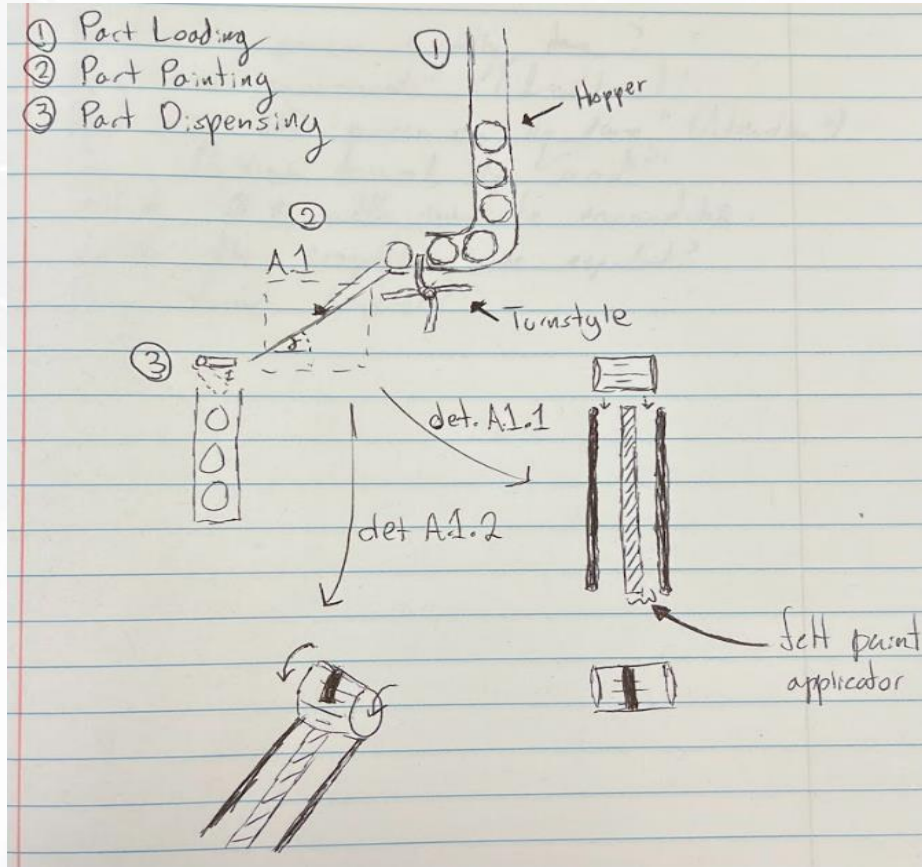 ① Part Loading
② Part Painting
③ Part Dispensing
①
Hopper
②
A.1
Turnstyle
③
det. A.1.1
det A.1.2
felt paint
applicator